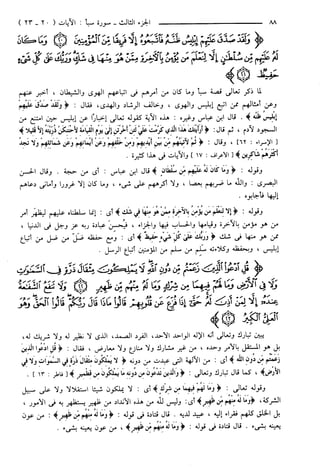 ٨٨ الجزء الثالث - سورة سبأ : الآيات ( ٢٠ - ٢٣ )
وَلَقَدْ صَدَّقَ عَلَيْهِمْ إِبْلِيسُ ظَنَّهُ فَاتَّبَعُوهُ إِلَّا فَرِيقًا مِنَ الْمُؤْمِنِينَ ۝ وَمَا كَانَ
لَهُ عَلَيْهِمْ مِنْ سُلْطَانٍ إِلَّا لِنَعْلَمَ مَنْ يُؤْمِنُ بِالْآخِرَةِ مِمَّنْ هُوَ مِنْهَا فِي شَكٍّ وَرَبُّكَ عَلَى كُلِّ شَيْءٍ
حَفِيظٌ
لما ذكر تعالى قصة سبأ وما كان من أمرهم في اتباعهم الهوى والشيطان ، أخبر عنهم
وعن أمثالهم ممن اتبع إبليس والهوى ، وخالف الرشاد والهدى، فقال : ﴿ ولقد صدق عليهم
إبليس ظنه ﴾ . قال ابن عباس وغيره : هذه الآية كقوله تعالى إخباراً عن إبليس حين امتنع من
السجود لآدم ، ثم قال : ﴿ أرأيتك هذا الذي كرمت علي لئن أخرتن إلى يوم القيامة لأحتنكن ذريته إلا قليلا ﴾
[ الإسراء : ٦٢ ] ، وقال : ﴿ ثم لآتينهم من بين أيديهم ومن خلفهم وعن أيمانهم وعن شمائلهم ولا تجد
أكثرهم شاكرين ﴾ [ الأعراف : ١٧ ] والآيات في هذا كثيرة .
وقوله : ﴿ وما كان له عليهم من سلطان ﴾ قال ابن عباس : أي من حجة . وقال الحسن
البصري : والله ما ضربهم بعصا ، ولا أكرههم على شيء ، وما كان إلا غروراً وأماني دعاهم
إليها فأجابوه .
وقوله : ﴿ إلا لنعلم من يؤمن بالآخرة ممن هو منها في شك ﴾ أي : إنما سلطناه عليهم ليظهر أمر
من هو مؤمن بالآخرة وقيامها والحساب فيها والجزاء ، فيحسن عبادة ربه عز وجل في الدنيا ،
ممن هو منها في شك ﴿ وربك على كل شيء حفيظ ﴾ أي : ومع حفظه ضل من ضل من أتباع
إبليس ، وبحفظه وكلاءته سلم من سلم من المؤمنين أتباع الرسل .
قُلِ ادْعُوا الَّذِينَ زَعَمْتُمْ مِنْ دُونِ اللَّهِ لَا يَمْلِكُونَ مِثْقَالَ ذَرَّةٍ فِي السَّمَوَاتِ
وَلَا فِي الْأَرْضِ وَمَا لَهُمْ فِيهِمَا مِنْ شِرْكٍ وَمَا لَهُ مِنْهُمْ مِنْ ظَهِيرٍ ۝ وَلَا تَنْفَعُ الشَّفَاعَةُ
عِنْدَهُ إِلَّا لِمَنْ أَذِنَ لَهُ حَتَّى إِذَا فُزِّعَ عَنْ قُلُوبِهِمْ قَالُوا مَاذَا قَالَ رَبُّكُمْ قَالُوا الْحَقَّ وَهُوَ
الْعَلِيُّ الْكَبِيرُ
يبين تبارك وتعالى أنه الإله الواحد الأحد، الفرد الصمد، الذي لا نظير له ولا شريك له،
بل هو المستقل بالأمر وحده ، من غير مشارك ولا منازع ولا معارض ، فقال : ﴿ قل ادعوا الذين
زعمتم من دون الله ﴾ أي : من الآلهة التي عبدت من دونه ﴿ لا يملكون مثقال ذرة في السموات ولا في
الأرض ﴾ ، كما قال تبارك وتعالى : ﴿ والذين تدعون من دونه ما يملكون من قطمير ﴾ [ فاطر : ١٣ ] .
وقوله تعالى : ﴿ وما لهم فيهما من شرك ﴾ أي : لا يملكون شيئا استقلالا ولا على سبيل
الشركة، ﴿ وما له منهم من ظهير ﴾ أي : وليس لله من هذه الأنداد من ظهير يستظهر به في الأمور ،
بل الخلق كلهم فقراء إليه ، عبيد لديه . قال قتادة في قوله : ﴿ وما له منهم من ظهير ﴾ : من عون
يعينه بشيء . قال قتادة في قوله : ﴿ وما له منهم من ظهير ﴾ ، من عون يعينه بشيء .